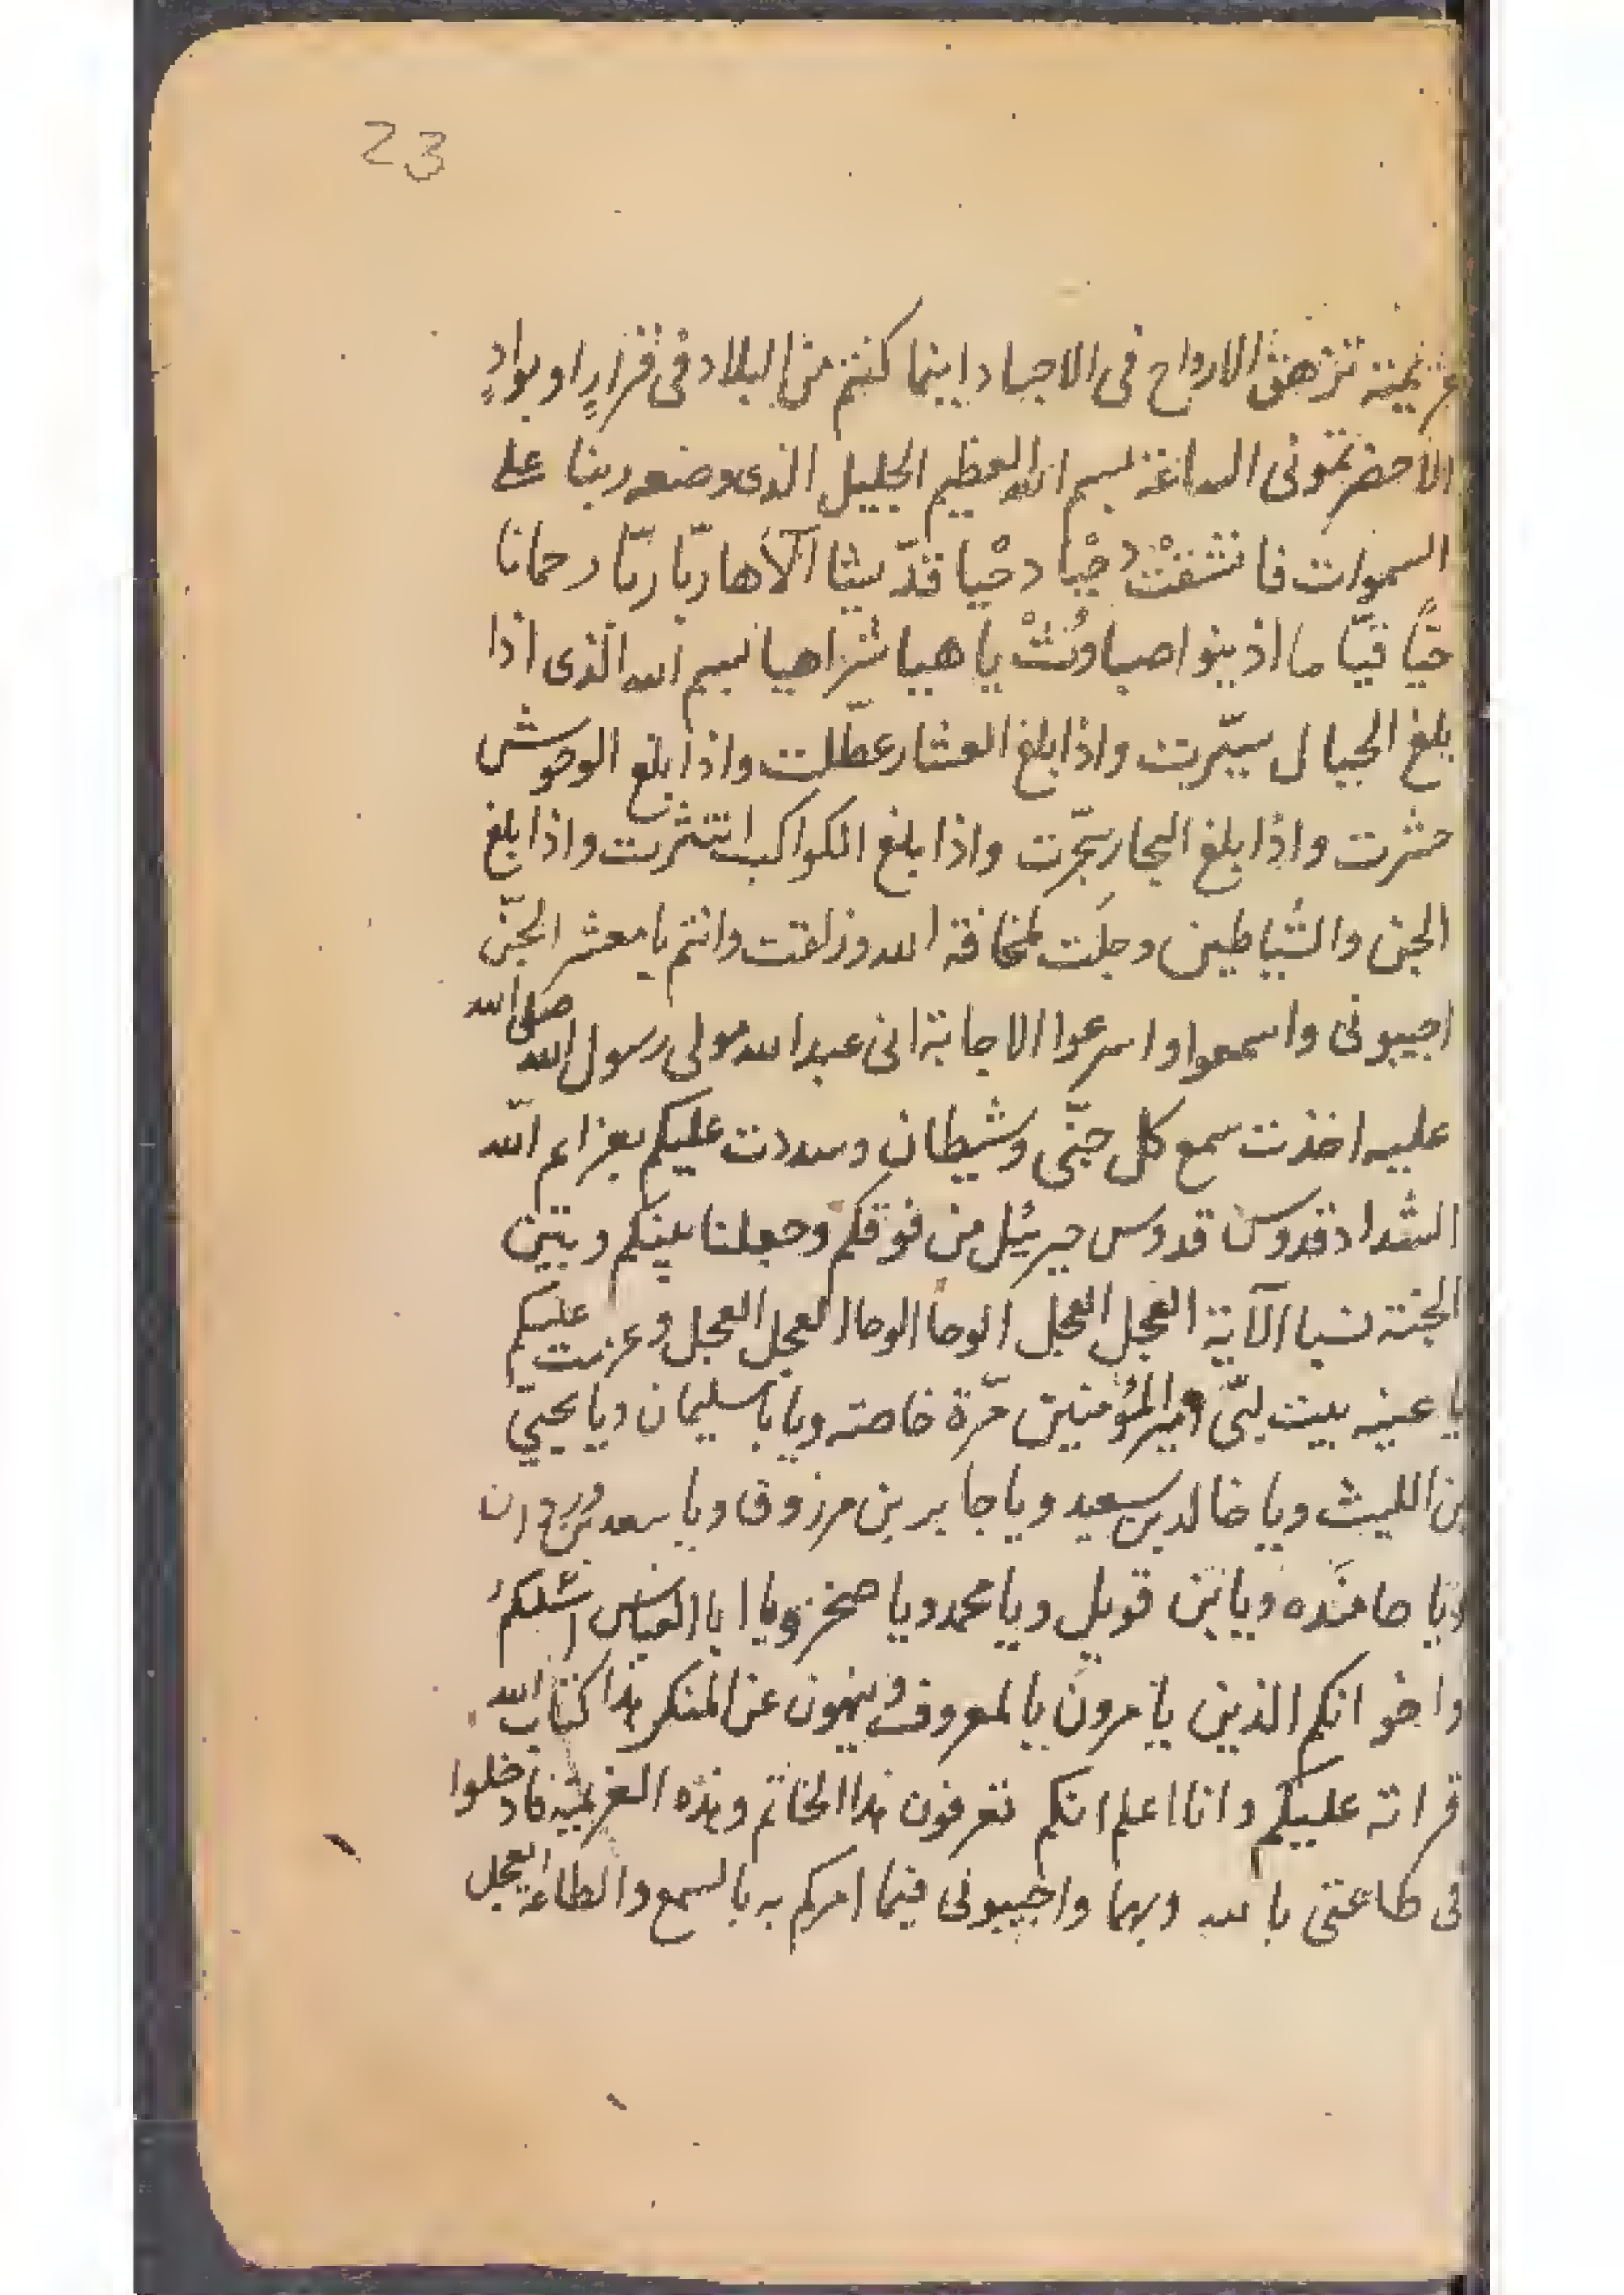 23
عزيمة تزهق الارواح فى الاجساد اينما كنتم من البلاد فى قرارٍ او بوادٍ
الا حضرتمونى الساعة بسم الله العظيم الجليل الذى وضعه ربنا على
السموات فانشقت دحْيا دحْيا قدّيثا آلاها ربّا ربّا رحمانا
حيًّا قيّاما اذ ينوا اصباوُثْ ياهيا شراهيا بسم الله الّذى اذا
بلغ الجبال سيّرت واذا بلغ العشار عطّلت واذا بلغ الوحوش
حشرت واذا بلغ البحار سجّرت واذا بلغ الكواكب انتثرت واذا بلغ
الجن والشّياطين وجلت لمخافة الله وزلقت وانتم يا معشر الجنّ
اجيبونى واسمعوا واسرعوا الاجابة انى عبد الله مولى رسول الله صلى الله
عليه اخذت سمع كل جنّى وشيطان وسددت عليكم بعزايم الله
الشداد قدوس قدوس جبرئيل من فوقكم وجعلنا بينكم وبين
الجنة نسبا الآية العجل العجل الوحا الوحا العجل العجل وعزمت عليكم
يا عينه بيت لبنّى امير المؤمنين مرّة خاصته ويا باسليمان ويا يحيىّ
بن الليث ويا خالد بن سعيد ويا جابر بن مرزوق ويا سعد بن
ويا ويا بن قويل ويا محمد ويا صخر ويا ابا العباس
واخوانكم الذين يامرون بالمعروف وينهون عن المنكر هذا كتاب الله
قراته عليكم وانا اعلم انكم تعرفون هذا الخاتم وهذه العزيمة فادخلوا
فى طاعتى بالله وبهما واجيبونى فيما امركم به بالسمع والطاعة العجل